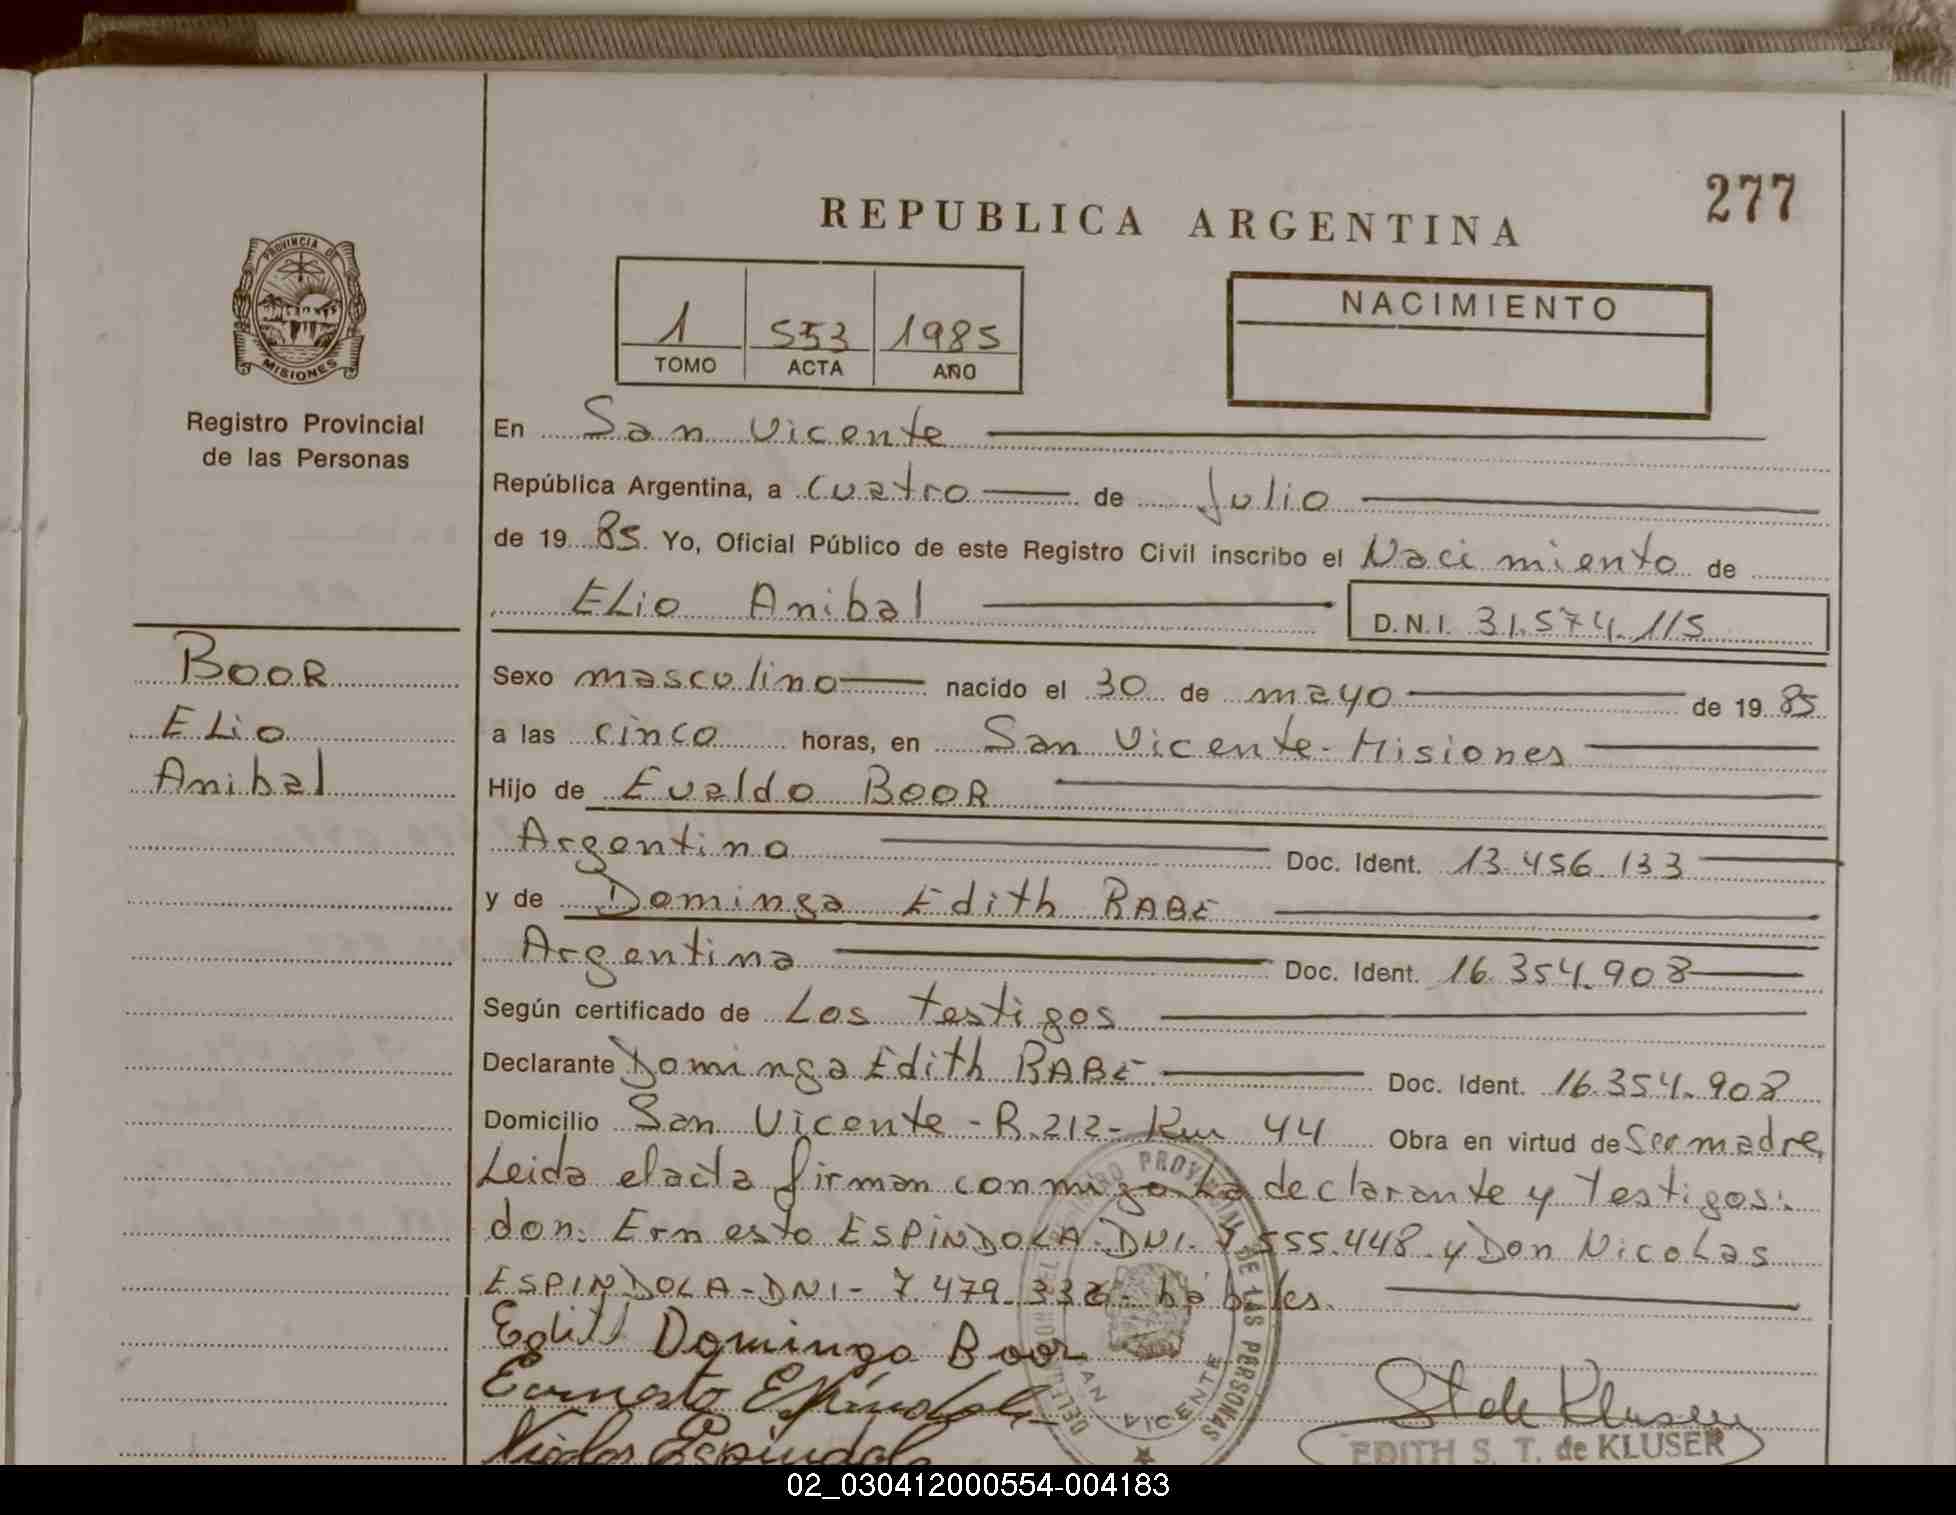 277
REPUBLICA ARGENTINA
PROVINCIA DE
MISIONES
Registro Provincial
de las Personas
1 553 1985
TOMO ACTA AÑO
NACIMIENTO
En San Vicente
República Argentina, a cuatro de Julio
de 19 85. Yo, Oficial Público de este Registro Civil inscribo el Nacimiento de
ELio Anibal D.N.I. 31.574.115
BOOR
ELio
Anibal
Sexo masculino nacido el 30 de mayo de 19 85
a las cinco horas, en San Vicente-Misiones
Hijo de Evaldo BOOR
Argentino Doc. Ident. 13.456.133
y de Dominga Edith RABE
Argentina Doc. Ident. 16.354.908
Según certificado de Los testigos
Declarante Dominga Edith RABE Doc. Ident. 16.354.908
Domicilio San Vicente-R.212-Km 44 Obra en virtud de Ser madre
Leida el acta firman conmigo La declarante y testigos:
don: Ernesto ESPINDOLA-DNI- 555.448 y Don NicoLas
ESPINDOLA-DNI-7.479. hábiles.
Edith Dominga Boor
Ernesto Espíndola
Nicolas Espindola
PROVINCIAL DE LAS PERSONAS
SAN VICENTE
St de Kluser
EDITH S. T. de KLUSER
02_030412000554-004183